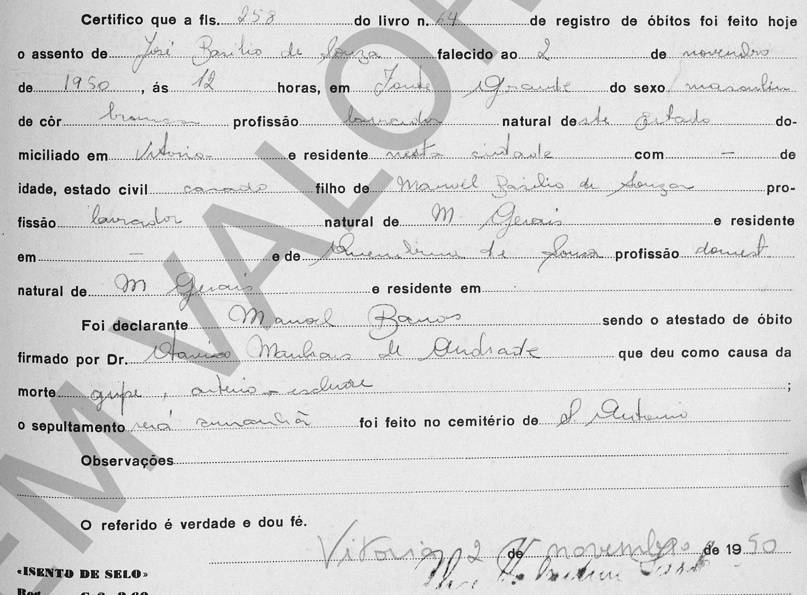 Certifico que a fls. 258 do livro n. 64 de registro de óbitos foi feito hoje
o assento de José Basilio de Souza falecido ao 2 de novembro
de 1950, ás 12 horas, em Fonte Grande do sexo masculin
de côr branca profissão lavrador natural deste Estado do-
miciliado em Vitoria e residente nesta cidade com — de
idade, estado civil casado filho de Manoel Basilio de Souza pro-
fissão lavrador natural de M Gerais e residente
em — e de de Souza profissão domest
natural de M Gerais e residente em
Foi declarante Manoel Barros sendo o atestado de óbito
firmado por Dr. de Andrade que deu como causa da
morte gripe, arterio-esclerose ;
o sepultamento será amanhã foi feito no cemitério de S Antonio
Observações
O referido é verdade e dou fé.
Vitoria 2 de novembro de 1950
«ISENTO DE SELO»
EM VALOR